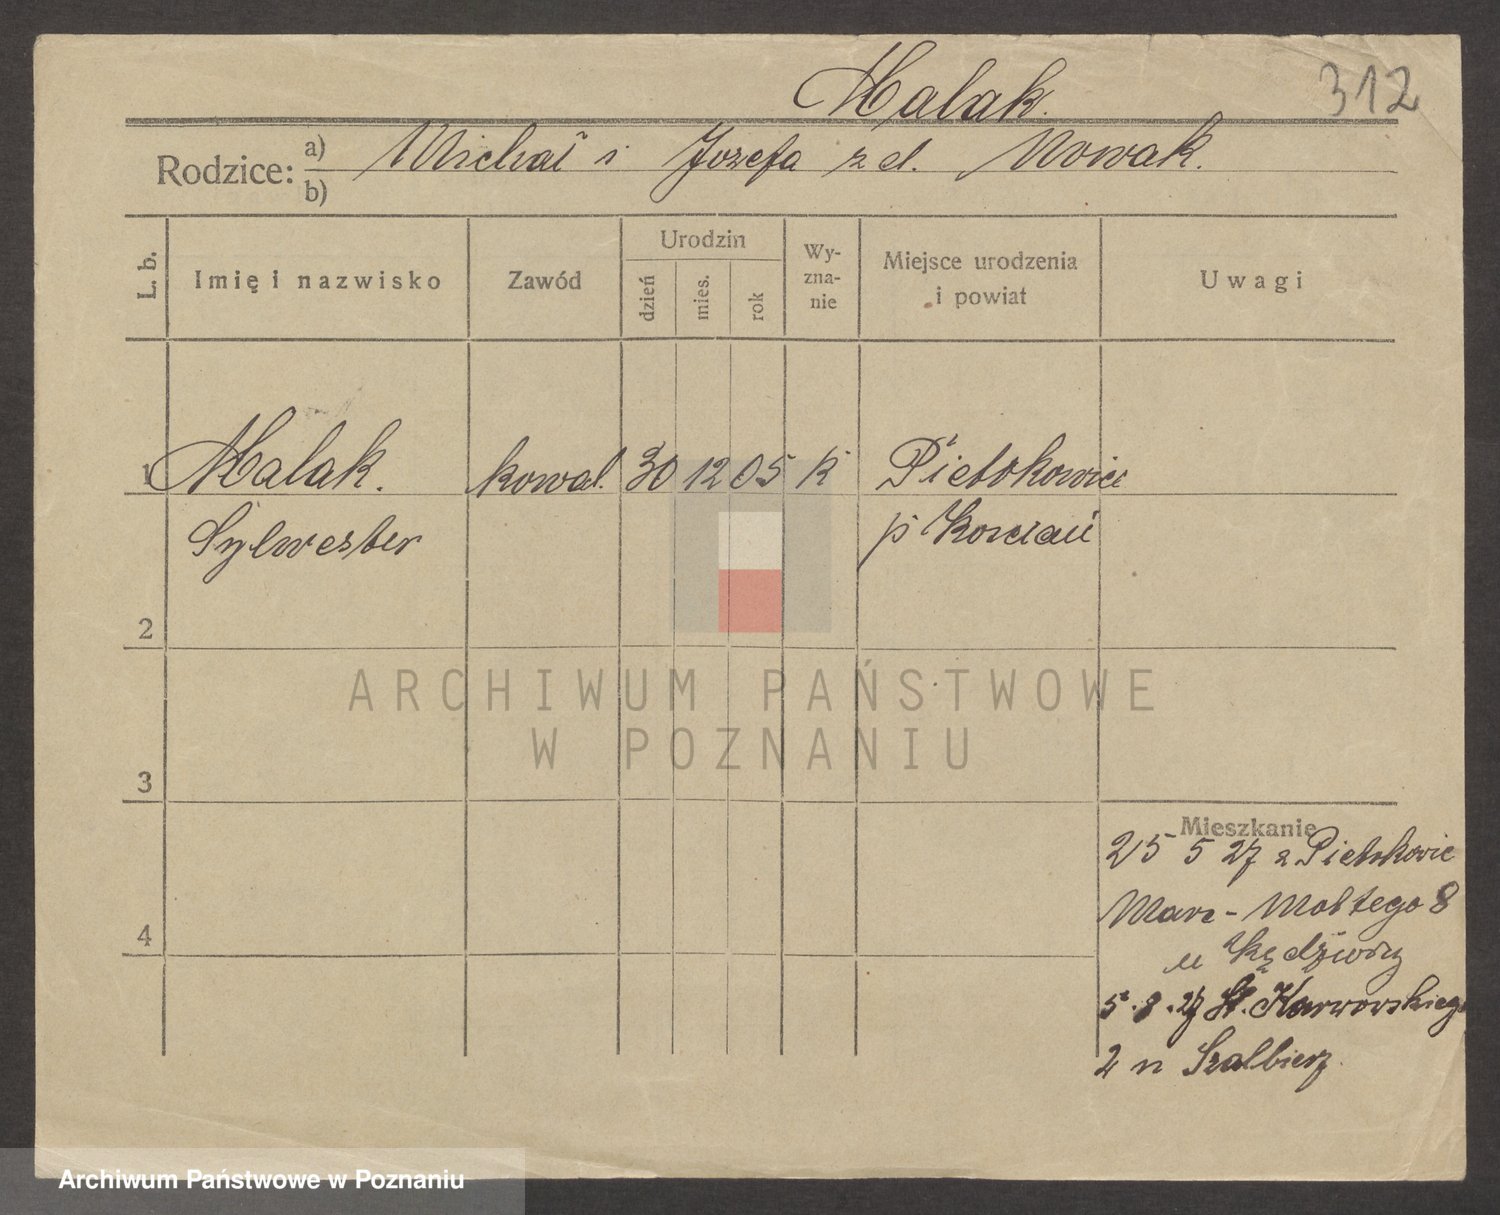 Malak.
312
Rodzice: a) Michał i Jozefa z d. Nowak.
b)
L. b.
Imię i nazwisko
Zawód
Urodzin
dzień
mies.
rok
Wy-
zna-
nie
Miejsce urodzenia
i powiat
Uwagi
1 Malak. kowal. 30 12 05 k Pietrkowice
Sylwester p Kościań
2
3
4
Mieszkanie
25 5 27 z Pietrkowic
Marc-Mottego 8
u Kędziory
5.8.27 St. Karwowskiego
2 n Szalbierz.
ARCHIWUM PAŃSTWOWE
W POZNANIU
Archiwum Państwowe w Poznaniu